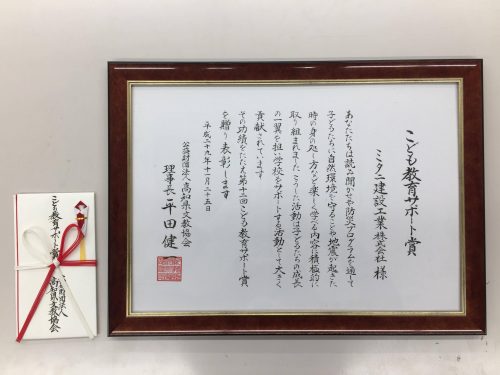 こども教育サポート賞
ミタニ建設工業株式会社 様
あなたたちは読み聞かせや防災プログラムを通して
子どもたちに自然環境を守ることや地震が起きた
時の身の処し方など楽しく学べる内容に積極的に
取り組まれましたこうした活動は子どもたちの成長
の一翼を担い学校をサポートする活動として大きく
貢献されています
その功績をたたえ第十二回こども教育サポート賞
を贈り表彰します
平成二十九年十一月二十五日
公益財団法人高知県文教協会
理事長 平田 健
こども教育サポート賞
公益財団法人
高知県文教協会